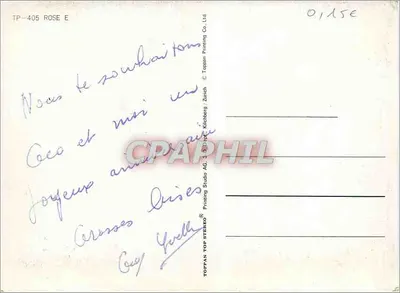 TP-405 ROSE E
0,15€
Nous te souhaitons
Coco et moi un
Joyeux anniversaire
Grosses bises
CPAPHIL
TOPPAN TOP STEREO®
Printing Studio AG, Kilchberg - Zurich
© Toppan Printing Co, Ltd